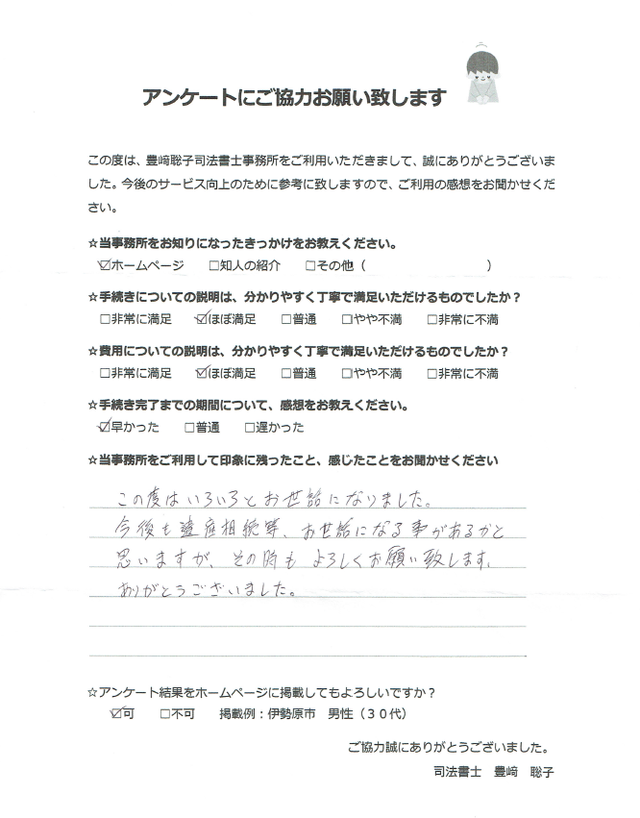 アンケートにご協力お願い致します
この度は、豊﨑聡子司法書士事務所をご利用いただきまして、誠にありがとうございま
した。今後のサービス向上のために参考に致しますので、ご利用の感想をお聞かせくだ
さい。
☆当事務所をお知りになったきっかけをお教えください。
☑ホームページ □知人の紹介 □その他（ ）
☆手続きについての説明は、分かりやすく丁寧で満足いただけるものでしたか？
□非常に満足 ☑ほぼ満足 □普通 □やや不満 □非常に不満
☆費用についての説明は、分かりやすく丁寧で満足いただけるものでしたか？
□非常に満足 ☑ほぼ満足 □普通 □やや不満 □非常に不満
☆手続き完了までの期間について、感想をお教えください。
☑早かった □普通 □遅かった
☆当事務所をご利用して印象に残ったこと、感じたことをお聞かせください
この度はいろいろとお世話になりました。
今後も遺産相続等、お世話になる事があるかと
思いますが、その時もよろしくお願い致します。
ありがとうございました。
☆アンケート結果をホームページに掲載してもよろしいですか？
☑可 □不可 掲載例：伊勢原市 男性（３０代）
ご協力誠にありがとうございました。
司法書士 豊﨑 聡子